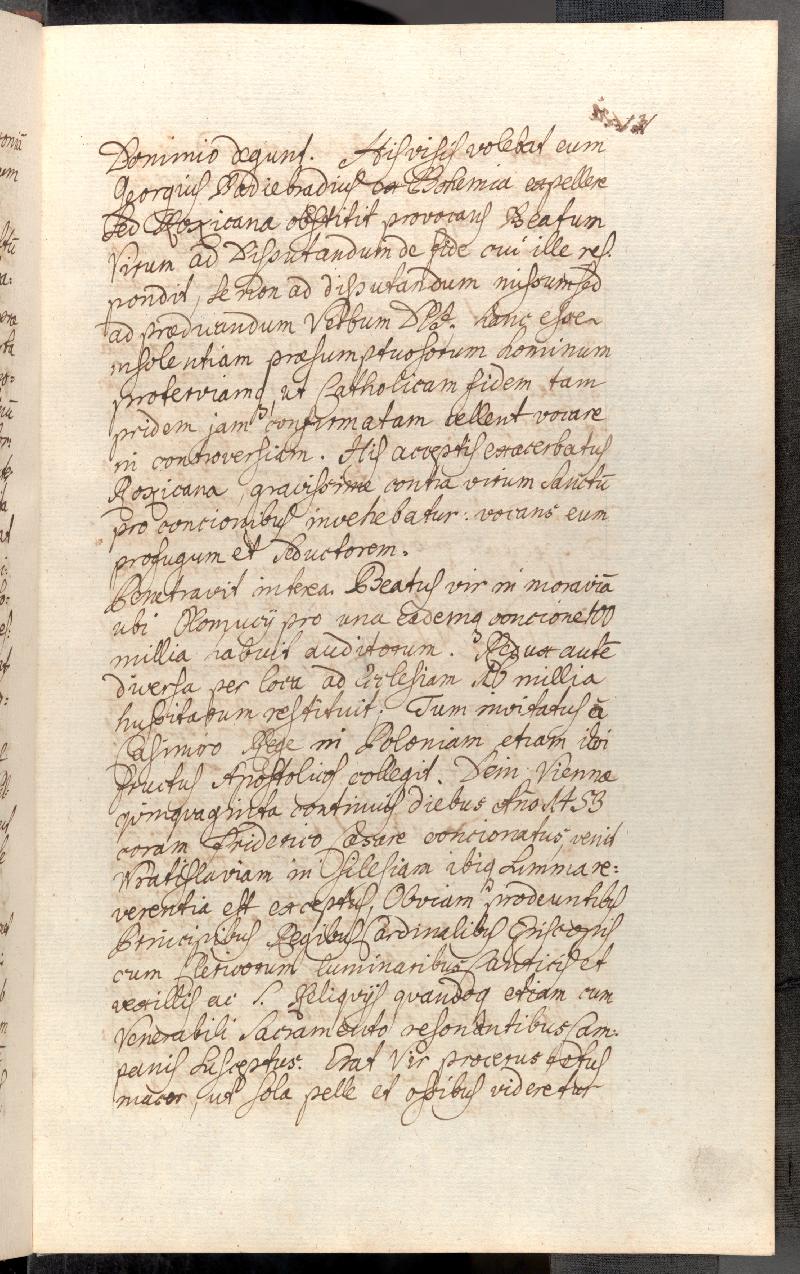 Dominio degunt. His visis volebat eum
Georgius Podiebradius ex Bohemia expellere
sed Roxicana obstitit provocans Beatum
Virum ad Disputandum de fide cui ille res.
pondit, se non ad disputandum missum sed
ad prædicandum Verbum hanc esse
insolentiam præsumptuosorum hominum
proterviamq, ut Catholicam fidem tam
pridem jam confirmatam vellent vocare
in controversiam. His acceptis exacerbatus
Roxicana, gravissime contra virum Sanctū
pro concionibus invehebatur: vocans eum
profugum et seductorem.
Penetravit interea Beatus vir in moraviā
ubi Olomucij pro una eademq concione 100
millia habuit auditorum. autē
diversa per loca ad Ecclesiam millia
hussitarum restituit; Tum invitatus à
Casimiro Rege in Poloniam etiam ibi
fructus Apostolicos collegit. Dein Viennæ
quinquaginta continuis diebus Año 1453
coram Friderico Cæsare concionatus, venit
Wratislaviam in Silesiam ibiq summa re:
verentia est exceptus, Obviam prodeuntibus
Principibus Regibus Cardinalibus Episcopis
cum Clericorum luminaribus Canticis et
vexillis ac S. Reliquijs quandoq etiam cum
Venerabili Sacramento resonantibus Cam:
panis susceptus. Erat Vir procerus totus
macer, ut sola pelle et ossibus videretur